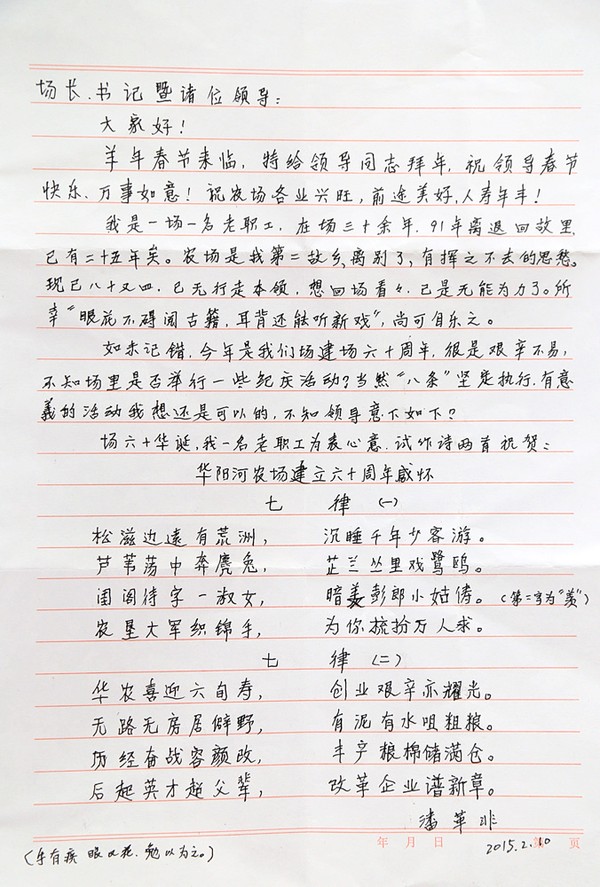 场长、书记暨诸位领导：
大家好！
羊年春节来临，特给领导同志拜年，祝领导春节
快乐、万事如意！祝农场各业兴旺，前途美好，人寿年丰！
我是一场一名老职工，在场三十余年，91年离退回故里
已有二十五年矣。农场是我第二故乡，离别了，有挥之不去的思愁。
现已八十又四，已无行走本领，想回场看々，已是无能为力了。所
幸“眼花不碍阅古籍，耳背还能听新戏”，尚可自乐之。
如未记错，今年是我们场建场六十周年，很是艰辛不易，
不知场里是否举行一些纪庆活动？当然“八条”坚定执行，有意
義的活动我想还是可以的，不知领导意下如下？
场六十华诞，我一名老职工为表心意，试作诗两首祝贺：
华阳河农场建立六十周年感怀
七 律 （一）
松滋边远有荒洲， 沉睡千年少客游。
芦苇荡中奔麂兔， 芷兰丛里戏鹭鸥。
闺阁待字一淑女， 暗羡彭郎小姑俦。（第二字为“羡”）
农垦大军织锦手， 为你梳扮万人求。
七 律 （二）
华农喜迎六旬寿， 创业艰辛亦耀光。
无路无房居僻野， 有泥有水咀粗粮。
历经奋战容颜改， 丰产粮棉储满仓。
后起英才超父辈， 改革企业谱新章。
潘革非
年 月 日 第 页
2015.2.10
（手有疾 眼又花，勉以为之。）